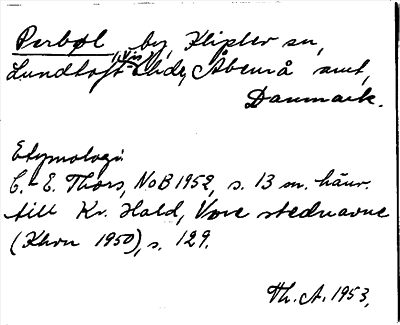 Perbøl, by, Kliplev sn,
Lundtoft-Vis Hde, Åbenrå amt,
Danmark.
Etymologi:
C.-E. Thors, NoB 1952, s. 13 m. hänv.
till Kr. Hald, Vore stednavne
(Khvn 1950), s. 129.
Th. A. 1953.